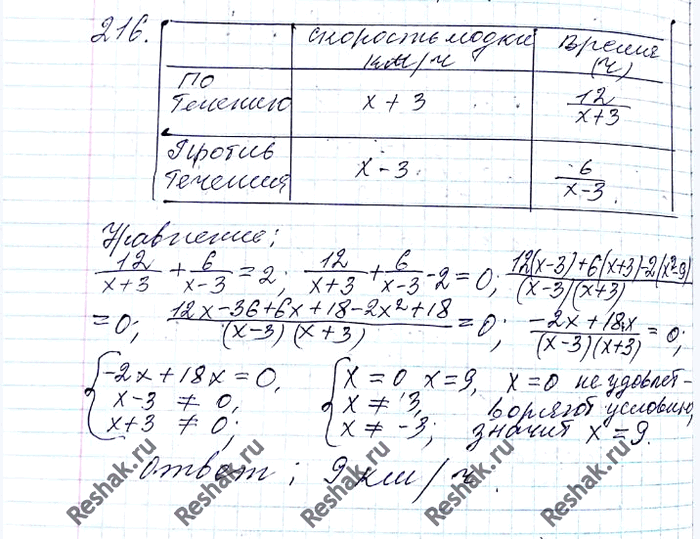 216.
скорость лодки км/ч
Время (ч)
По течению
x + 3
12/(x+3)
Против течения
x - 3
6/(x-3)
Уравнение;
12/(x+3) + 6/(x-3) = 2; 12/(x+3) + 6/(x-3) - 2 = 0; (12(x-3)+6(x+3)-2(x²-9))/((x-3)(x+3))
= 0; (12x-36+6x+18-2x²+18)/((x-3)(x+3)) = 0; (-2x+18x)/((x-3)(x+3)) = 0;
{ -2x+18x = 0, { x = 0 x = 9, x = 0 не удовлет-
x-3 ≠ 0, x ≠ 3, воряют условию,
x+3 ≠ 0; x ≠ -3; значит x = 9.
Ответ; 9 км/ч.
Reshak.ru Reshak.ru Reshak.ru Reshak.ru Reshak.ru